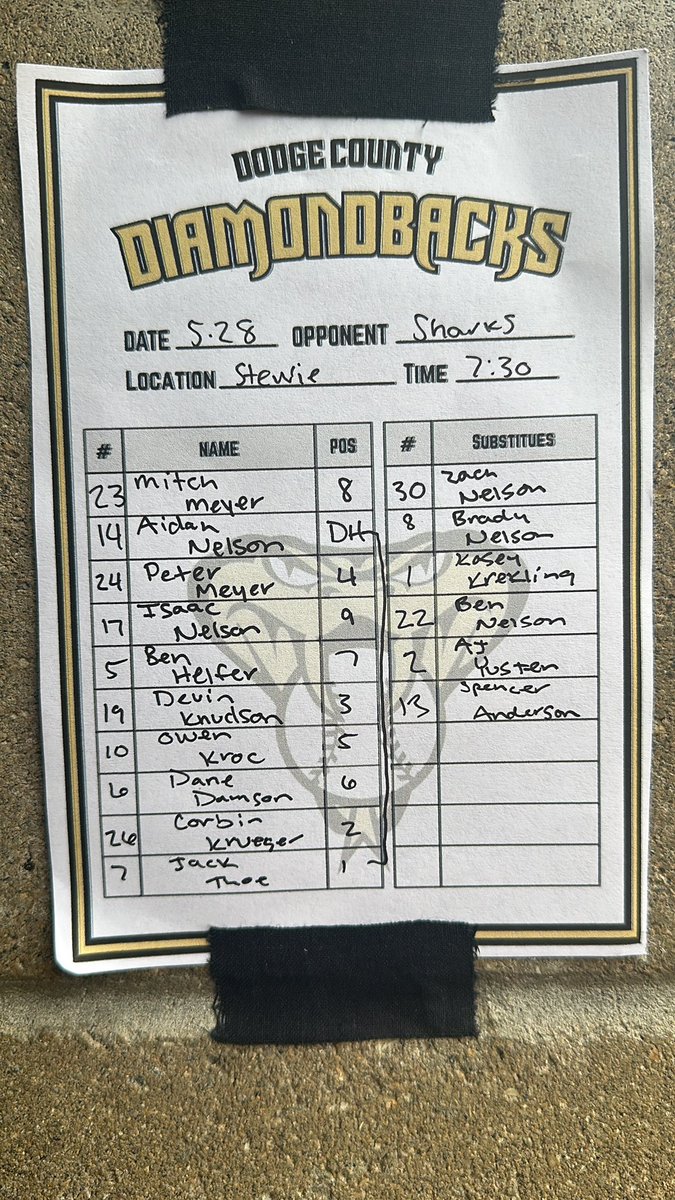 DODGE COUNTY
DIAMONDBACKS
DATE 5.28 OPPONENT Sharks
LOCATION Stewie TIME 7:30
# NAME POS
23 Mitch Meyer 8
14 Aidan Nelson DH
24 Peter Meyer 4
17 Isaac Nelson 9
5 Ben Helfer 7
19 Devin Knudson 3
10 Owen Kroc 5
6 Dane Damson 6
26 Corbin Krueger 2
7 Jack Thoe 1
# SUBSTITUES
30 Zach Nelson
8 Brady Nelson
1 Kasey Krekling
22 Ben Nelson
2 AJ Yusten
13 Spencer Anderson